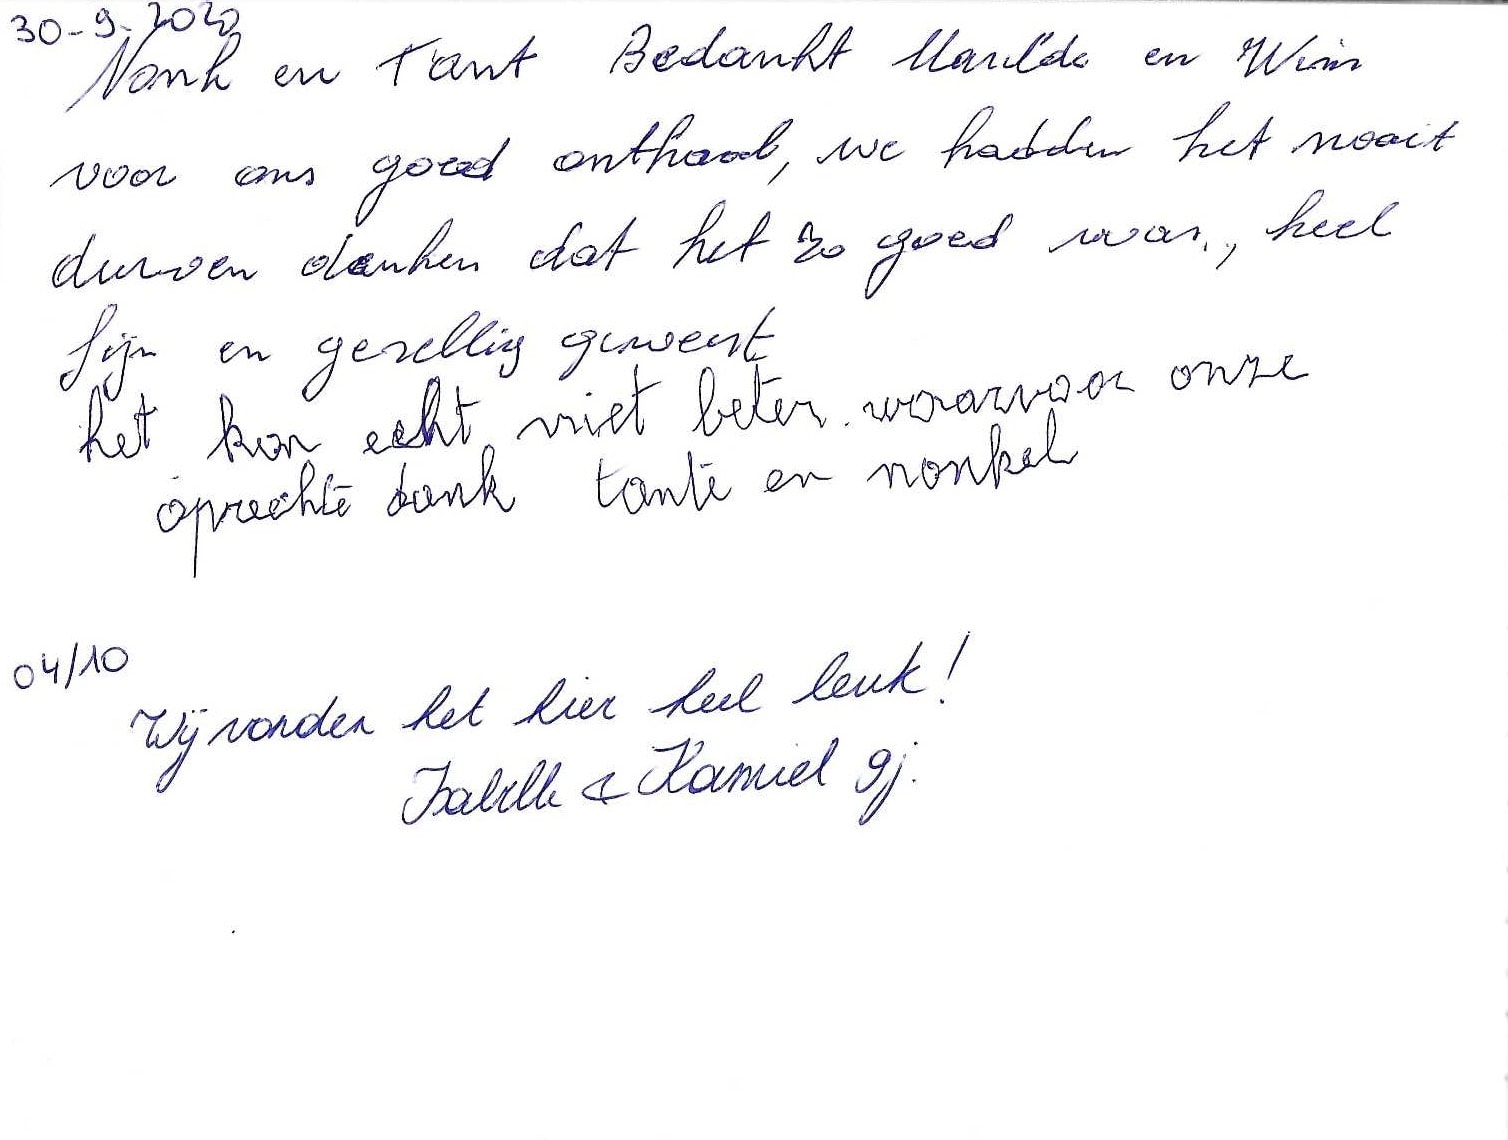 30-9-2020
Nonk en Tant Bedankt Marilda en Wim
voor ons goed onthaal, we hadden het nooit
durven denken dat het zo goed was, heel
fijn en gezellig geweest
het kon echt niet beter. waarvoor onze
oprechte dank tante en nonkel
04/10
Wij vonden het hier heel leuk!
Isabelle & Kamiel 9j.